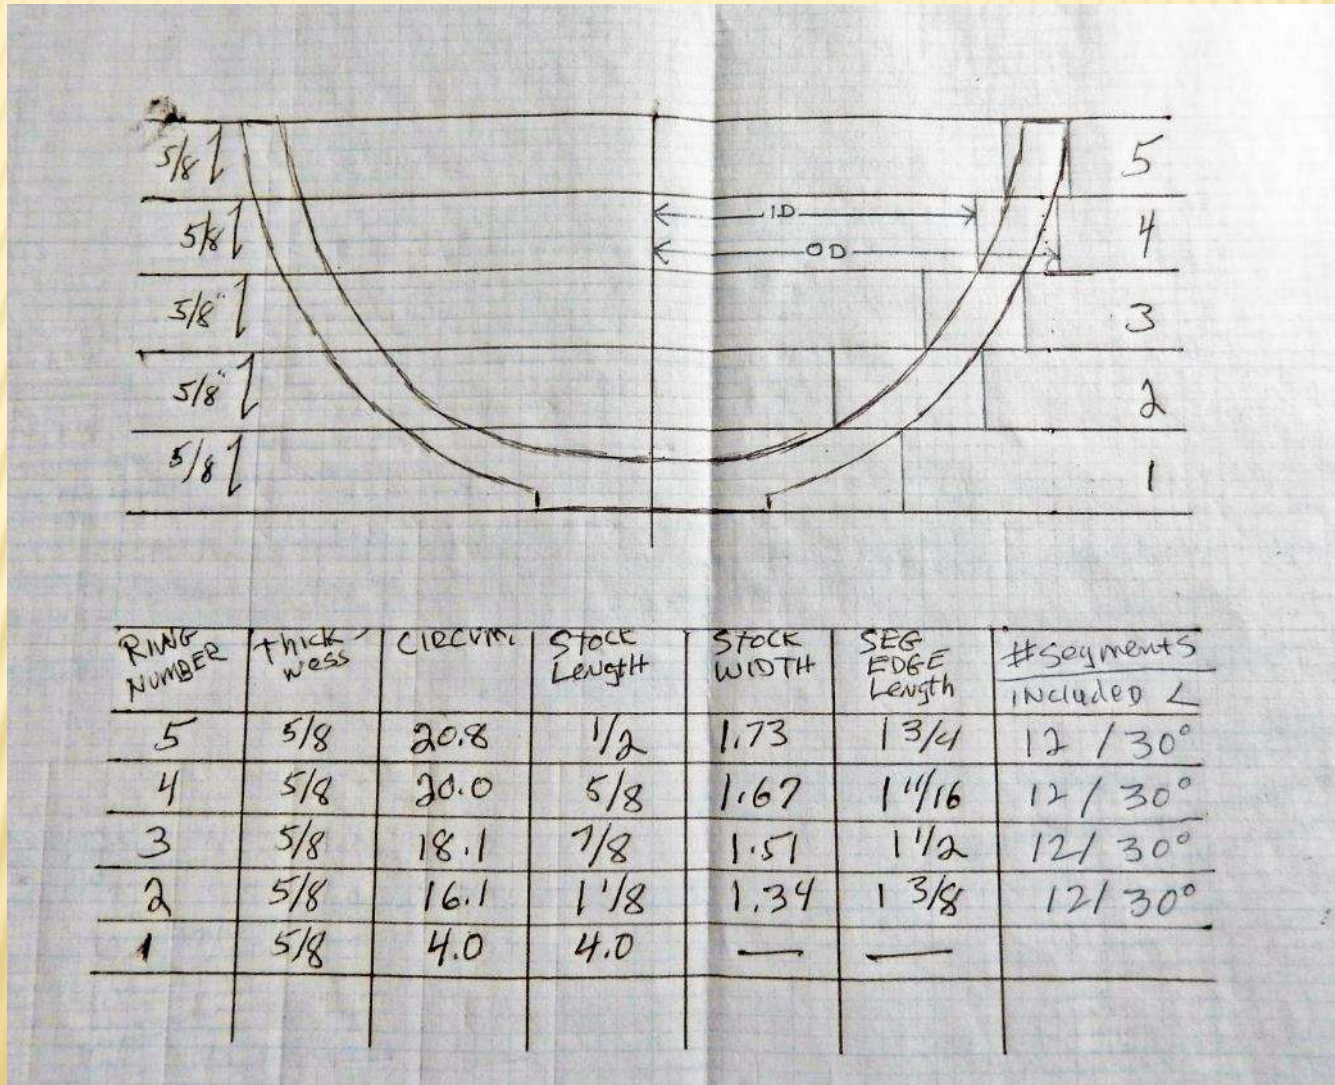 5/8 5
5/8 ID 4
OD
5/8" 3
5/8" 2
5/8 1
RING NUMBER thickness CIRCUM. STOCK Length STOCK WIDTH SEG EDGE Length #segments INCLUDED <
5 5/8 20.8 1/2 1.73 1 3/4 12 / 30°
4 5/8 20.0 5/8 1.67 1 11/16 12 / 30°
3 5/8 18.1 7/8 1.51 1 1/2 12 / 30°
2 5/8 16.1 1 1/8 1.34 1 3/8 12 / 30°
1 5/8 4.0 4.0 — —